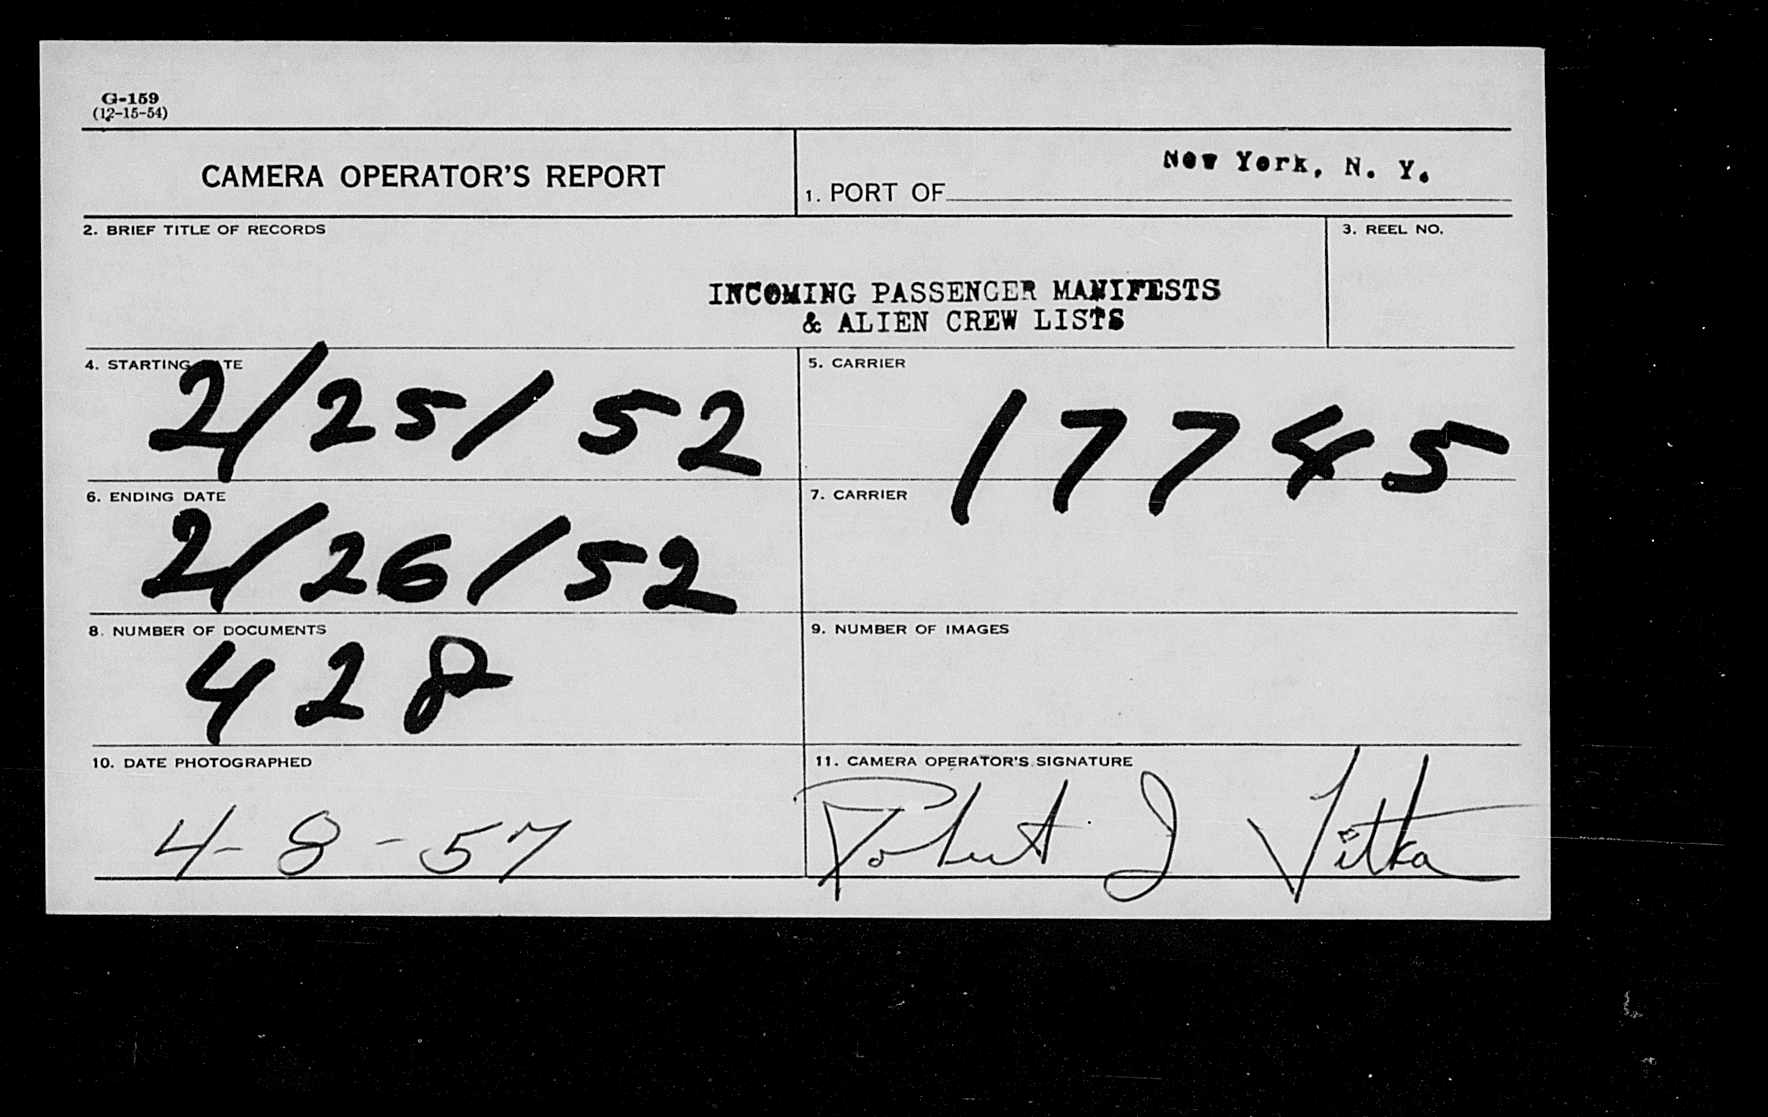 G-159
(12-15-54)
CAMERA OPERATOR'S REPORT
1. PORT OF New York, N. Y.
2. BRIEF TITLE OF RECORDS
INCOMING PASSENGER MANIFESTS
& ALIEN CREW LISTS
3. REEL NO.
4. STARTING DATE
2/25/52
5. CARRIER
17745
6. ENDING DATE
2/26/52
7. CARRIER
8. NUMBER OF DOCUMENTS
428
9. NUMBER OF IMAGES
10. DATE PHOTOGRAPHED
4-8-57
11. CAMERA OPERATOR'S SIGNATURE
Robert J Vitka